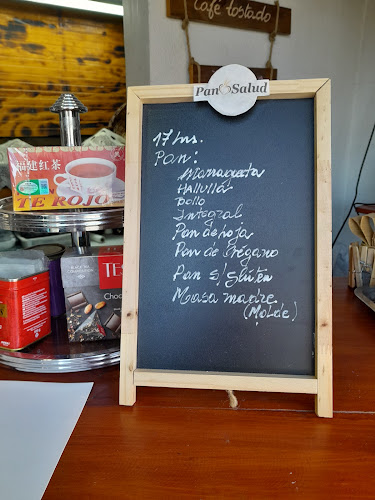 Café tostado
Pan Salud
17 hrs.
Pan:
Marraqueta
Hallulla
Bollo
Integral
Pan de soja
Pan de Orégano
Pan s/gluten
Masa madre
(Molde)
福建红茶
TE ROJO
TES
Choc